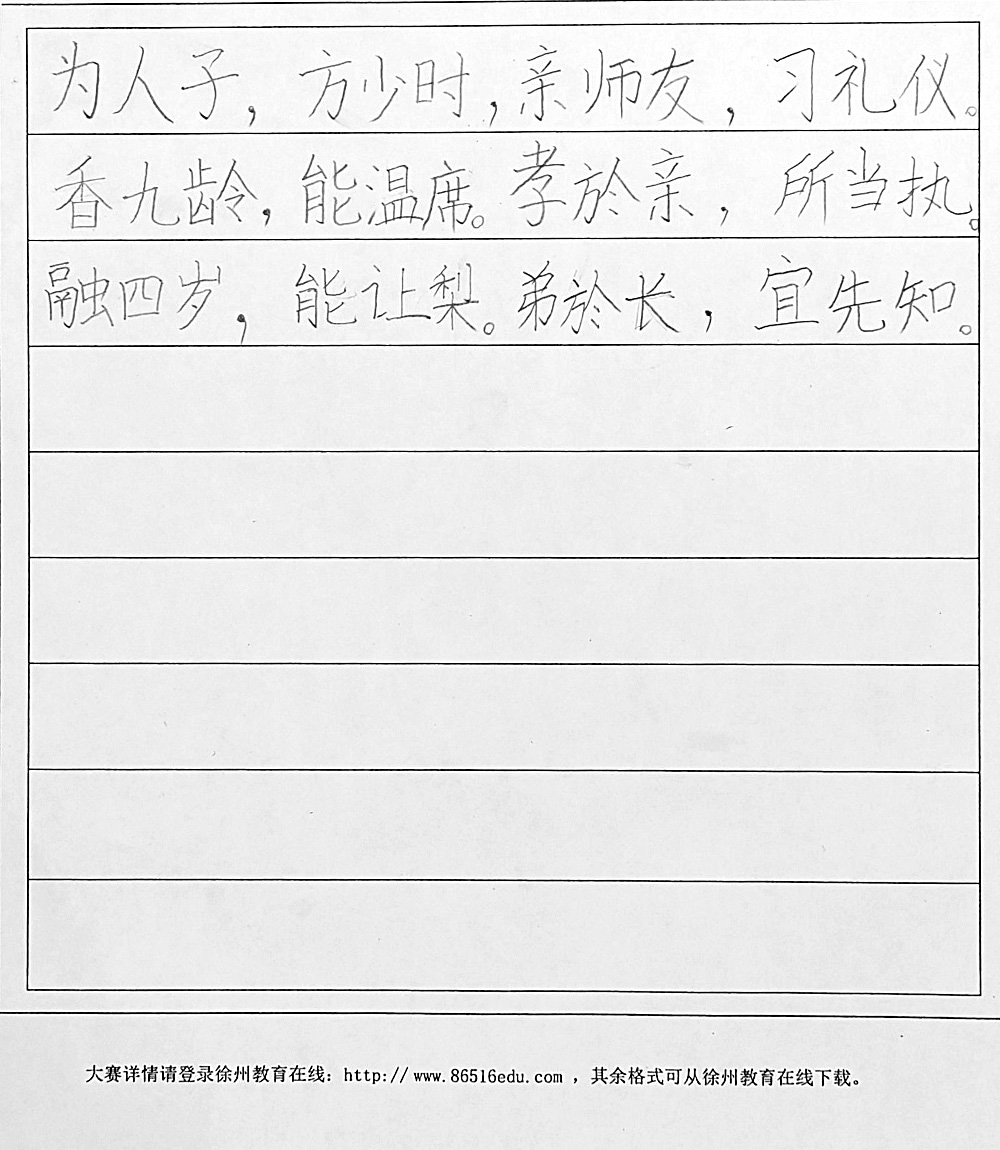 为人子，方少时，亲师友，习礼仪。
香九龄，能温席。孝於亲，所当执。
融四岁，能让梨。弟於长，宜先知。
大赛详情请登录徐州教育在线：http://www.86516edu.com，其余格式可从徐州教育在线下载。